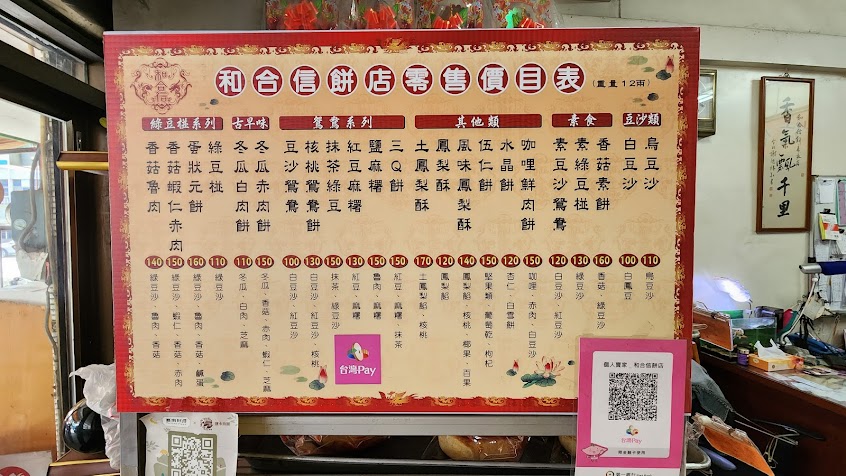 和合信餅店零售價目表
(重量12兩)
和合信
綠豆椪系列
古早味
鴛鴦系列
其他類
素食
豆沙類
香菇魯肉
140
綠豆沙、魯肉、香菇
香菇蝦仁赤肉
150
綠豆沙、蝦仁、香菇、赤肉
蛋狀元餅
160
綠豆沙、魯肉、香菇、鹹蛋
綠豆椪
110
綠豆沙
冬瓜白肉餅
110
冬瓜、白肉、芝麻
冬瓜赤肉餅
150
冬瓜、香菇、赤肉、蝦仁、芝麻
豆沙鴛鴦
100
白豆沙、紅豆沙
核桃鴛鴦
130
白豆沙、紅豆沙、核桃
抹茶綠豆
150
抹茶、綠豆沙
紅豆麻糬
130
紅豆、麻糬
鹽麻糬
150
魯肉、麻糬
三Q餅
150
紅豆、麻糬、抹茶
土鳳梨酥
170
土鳳梨餡、核桃
鳳梨酥
120
鳳梨餡
風味鳳梨酥
140
鳳梨餡、核桃、椰果、百果
伍仁餅
150
堅果類、葡萄乾、枸杞
水晶餅
120
杏仁、白雪餅
咖哩鮮肉餅
150
咖哩、赤肉、白豆沙
素豆沙鴛鴦
120
白豆沙、紅豆沙
素綠豆椪
130
綠豆沙
香菇素餅
160
香菇、綠豆沙
白豆沙
100
白鳳豆
烏豆沙
110
烏豆沙
台灣Pay
個人賣家：和合信餅店
台灣Pay
香氣飄千里